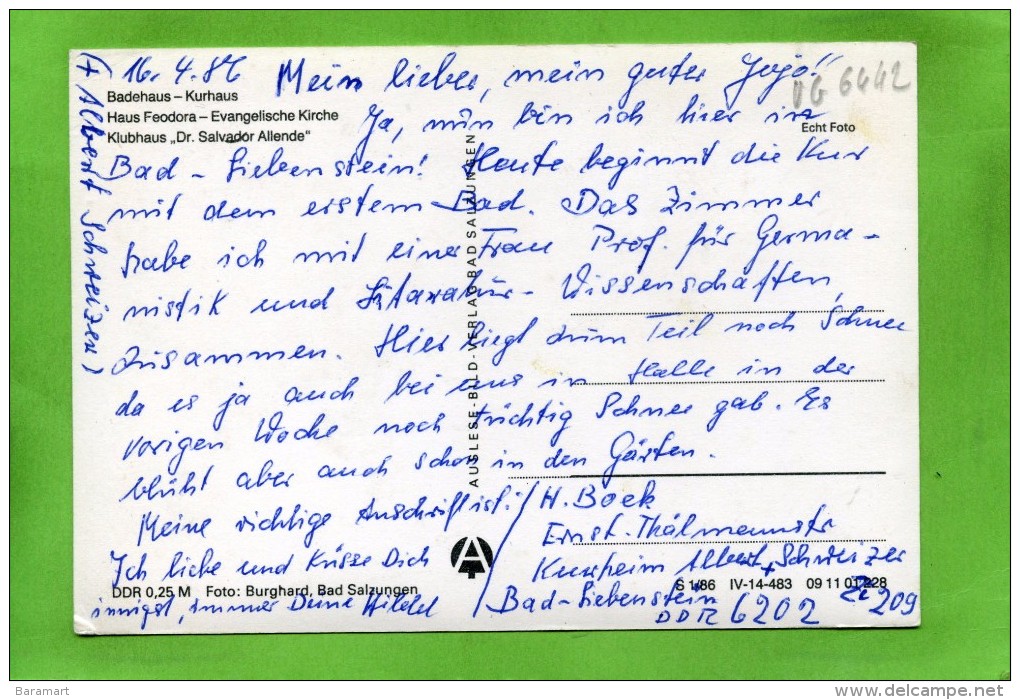 16.4.86 Mein lieber, mein guter Jojo!
DG 6442
Badehaus – Kurhaus
Haus Feodora – Evangelische Kirche
Klubhaus „Dr. Salvador Allende"
Echt Foto
Ja, nun bin ich hier in
Bad-Liebenstein! Heute beginnt die Kur
mit dem ersten Bad. Das Zimmer
habe ich mit einer Frau Prof. für Germa-
nistik und Literatur-Wissenschaften,
zusammen. Hier liegt zum Teil noch Schnee
da es ja auch bei uns in Halle in der
vorigen Woche noch tüchtig Schnee gab. Es
blüht aber auch schon in den Gärten.
Meine richtige Anschrift ist:
Ich liebe und küsse Dich
innigst, immer Deine
H. Boek
Ernst-Thälmannstr
Kurheim Albert + Schweizer
Zi 209
Bad-Liebenstein
DDR 6202
(+ Albert Schweizer)
AUSLESE-BILD-VERLAG BAD SALZUNGEN
A
DDR 0,25 M Foto: Burghard, Bad Salzungen
S 1/86 IV-14-483 09 11 01 228
Baramart
www.delcampe.net